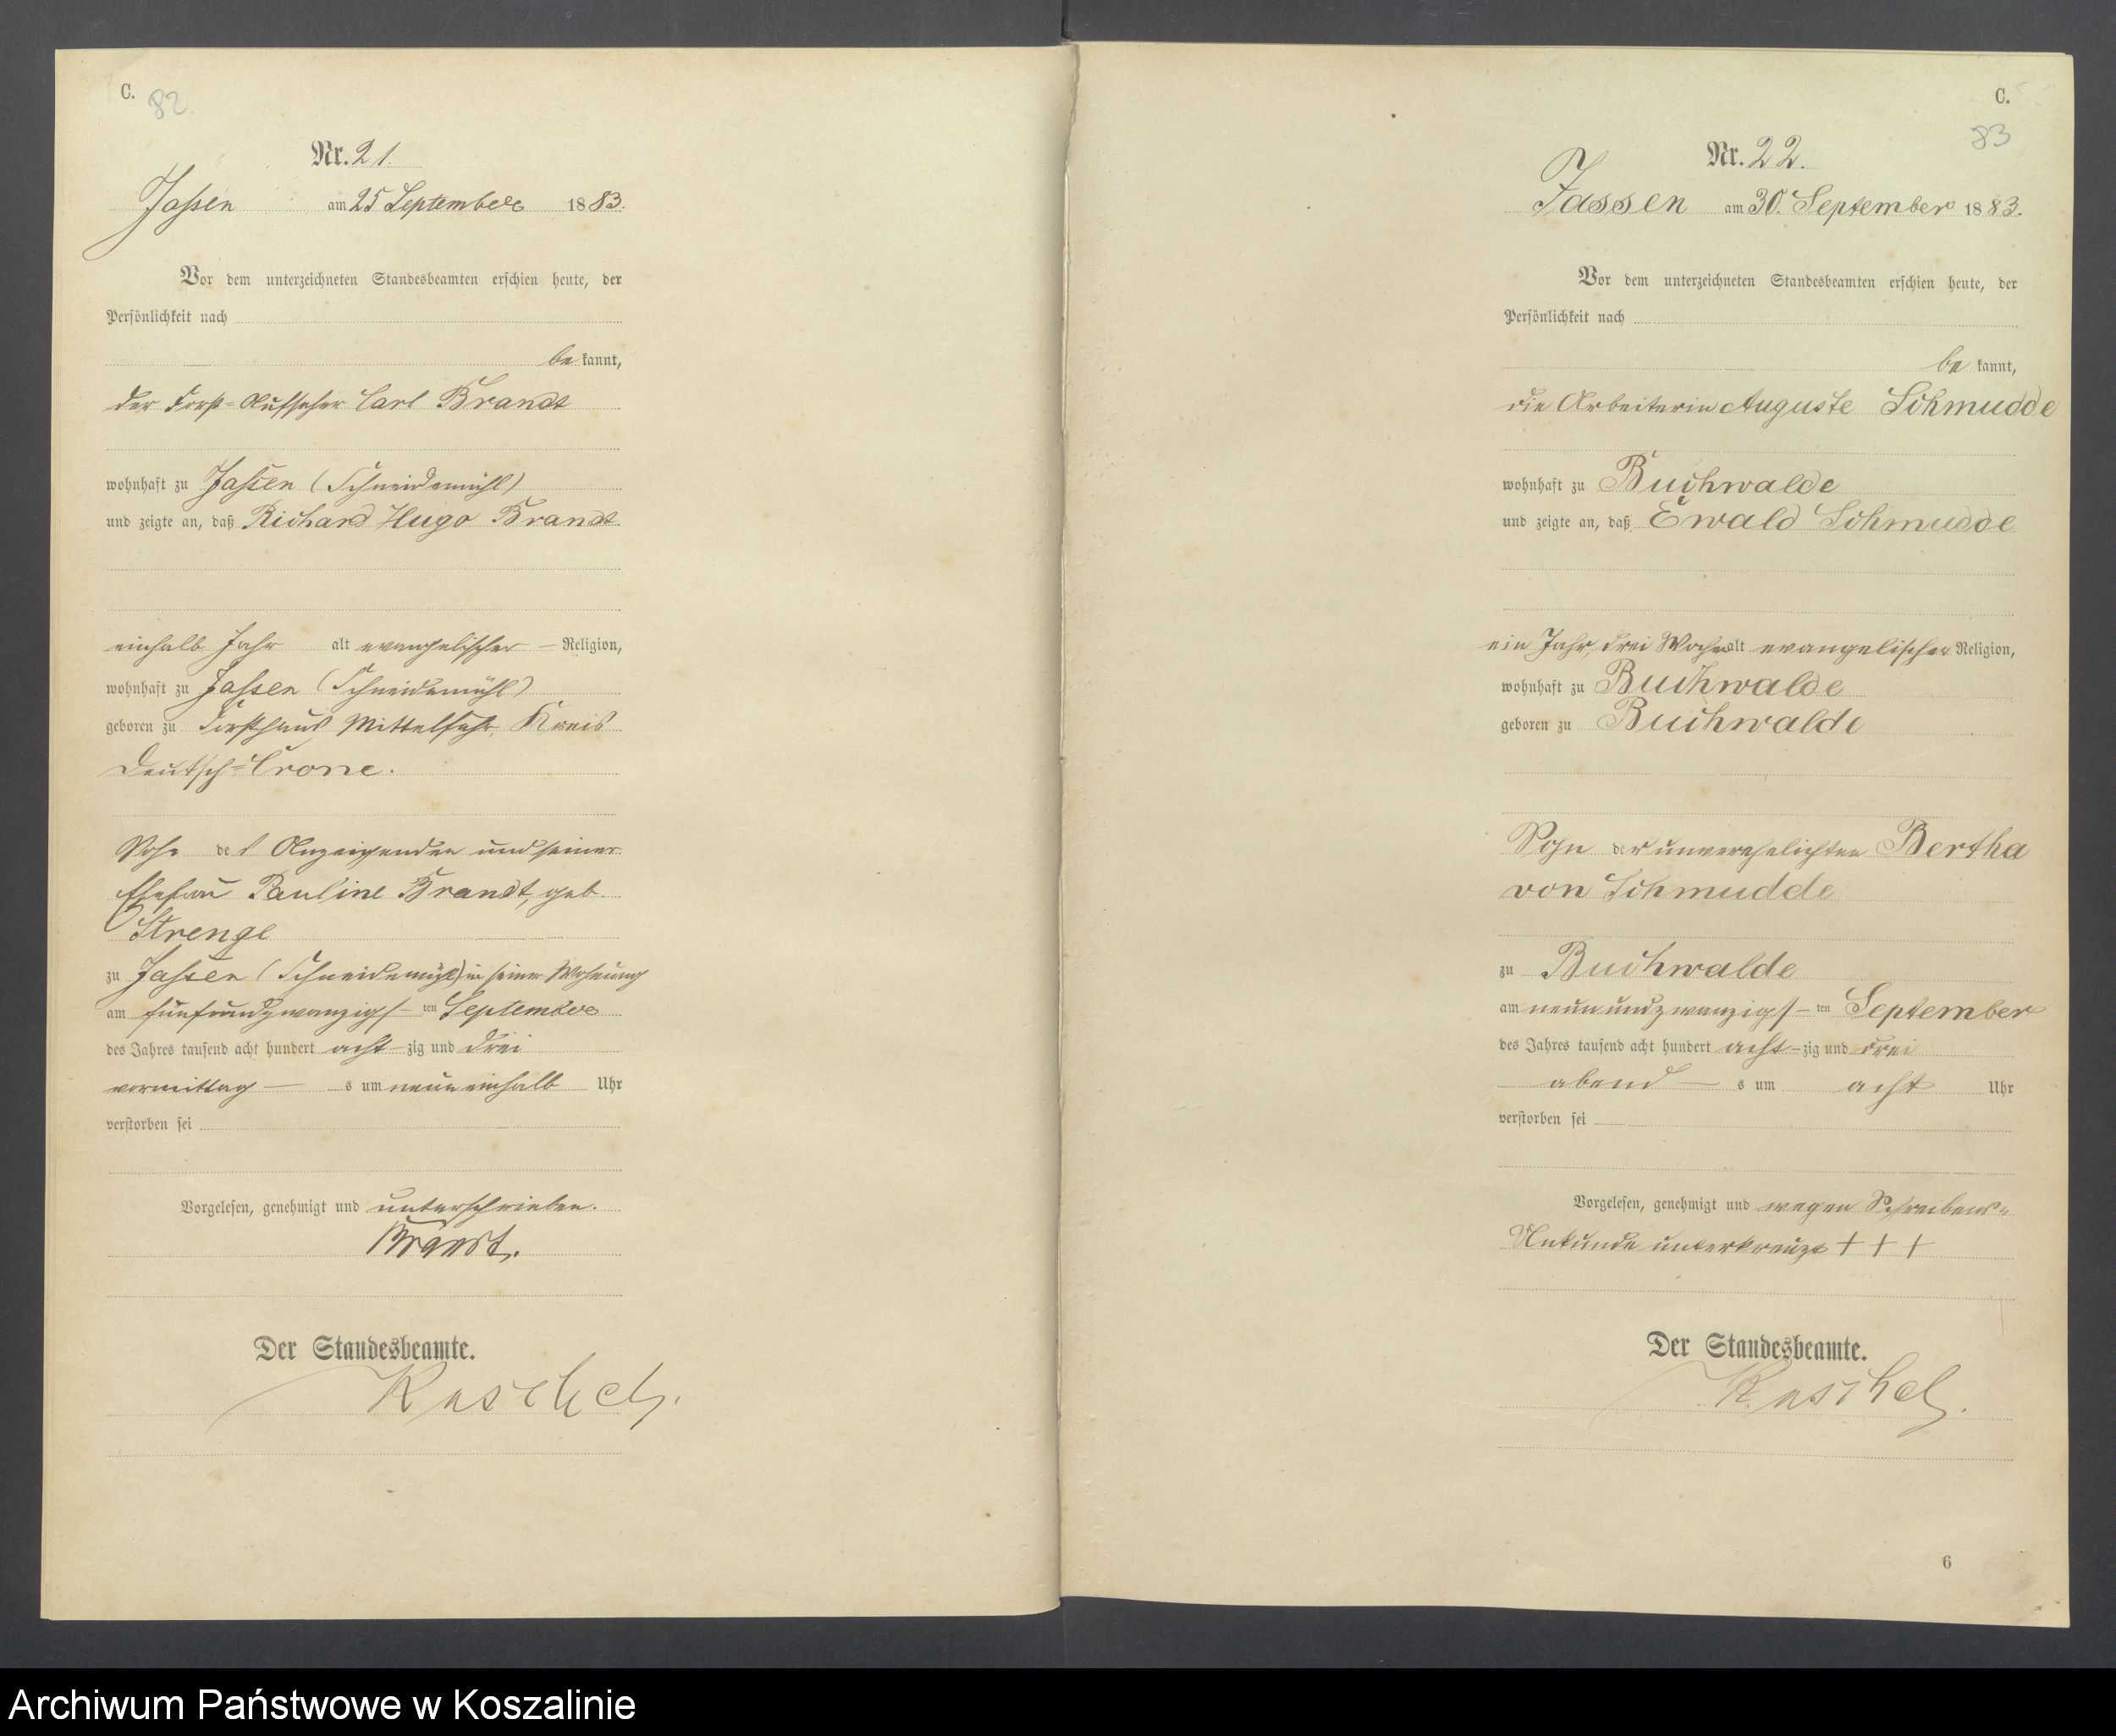 C.
82
Nr. 21.
Jassen am 25 September 1883.
Vor dem unterzeichneten Standesbeamten erschien heute, der
Persönlichkeit nach
be kannt,
der Forst-Aufseher Carl Brandt
wohnhaft zu Jassen (Schneidemühl)
und zeigte an, daß Richard Hugo Brandt
einhalb Jahr alt evangelischer – Religion,
wohnhaft zu Jassen (Schneidemühl)
geboren zu Forsthaus Kreis
Deutsch-Crone.
Sohn des Anzeigenden und seiner
Ehefrau Pauline Brandt, geb.
Strenge
zu Jassen (Schneidemühl) in seiner Wohnung
am fünfundzwanzigs – ten September
des Jahres tausend acht hundert acht – zig und drei
vormittag – s um neuneinhalb Uhr
verstorben sei
Vorgelesen, genehmigt und unterschrieben.
Brandt.
Der Standesbeamte.
Kaschel.
C.
83
Nr. 22.
Jassen am 30. September 1883.
Vor dem unterzeichneten Standesbeamten erschien heute, der
Persönlichkeit nach
be kannt,
die Arbeiterin Auguste Schmudde
wohnhaft zu Buchwalde
und zeigte an, daß Ewald Schmudde
ein Jahr, drei Wochen alt evangelischer Religion,
wohnhaft zu Buchwalde
geboren zu Buchwalde
Sohn der unverehelichten Bertha
von Schmudde
zu Buchwalde
am neunundzwanzigs – ten September
des Jahres tausend acht hundert acht – zig und drei
abend – s um acht Uhr
verstorben sei
Vorgelesen, genehmigt und wegen Schreibens-
Unkunde unterkreuzt + + +
Der Standesbeamte.
Kaschel.
6
Archiwum Państwowe w Koszalinie